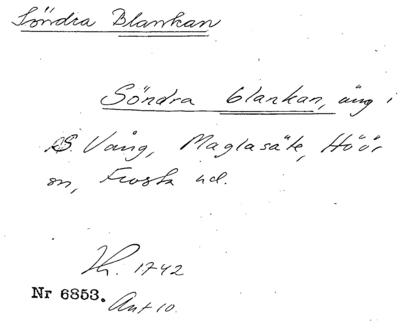 Söndra Blankan
Söndra blankan, äng i
S. Vång, Maglasäte, Höör
sn, Frosta hd.
Lh. 1742
Nr 6853. Ant 10.